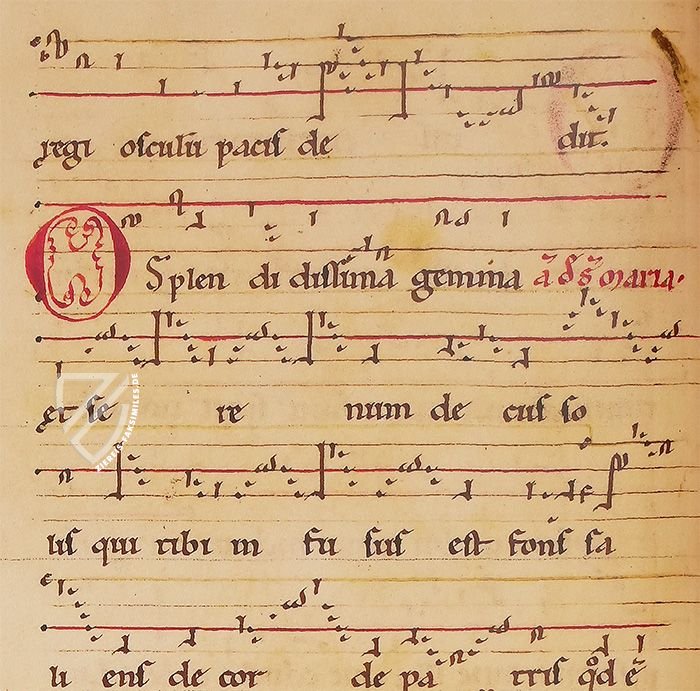 regi osculũ pacis de dit.
O Splen di dissima gemma ã đ Sͣ maria.
et se re num de cus so
lis qui tibi in fu sus est fons sa
li ens de cor de pa tris qͦd ẽ
ZIEREIS-FAKSIMILES.DE